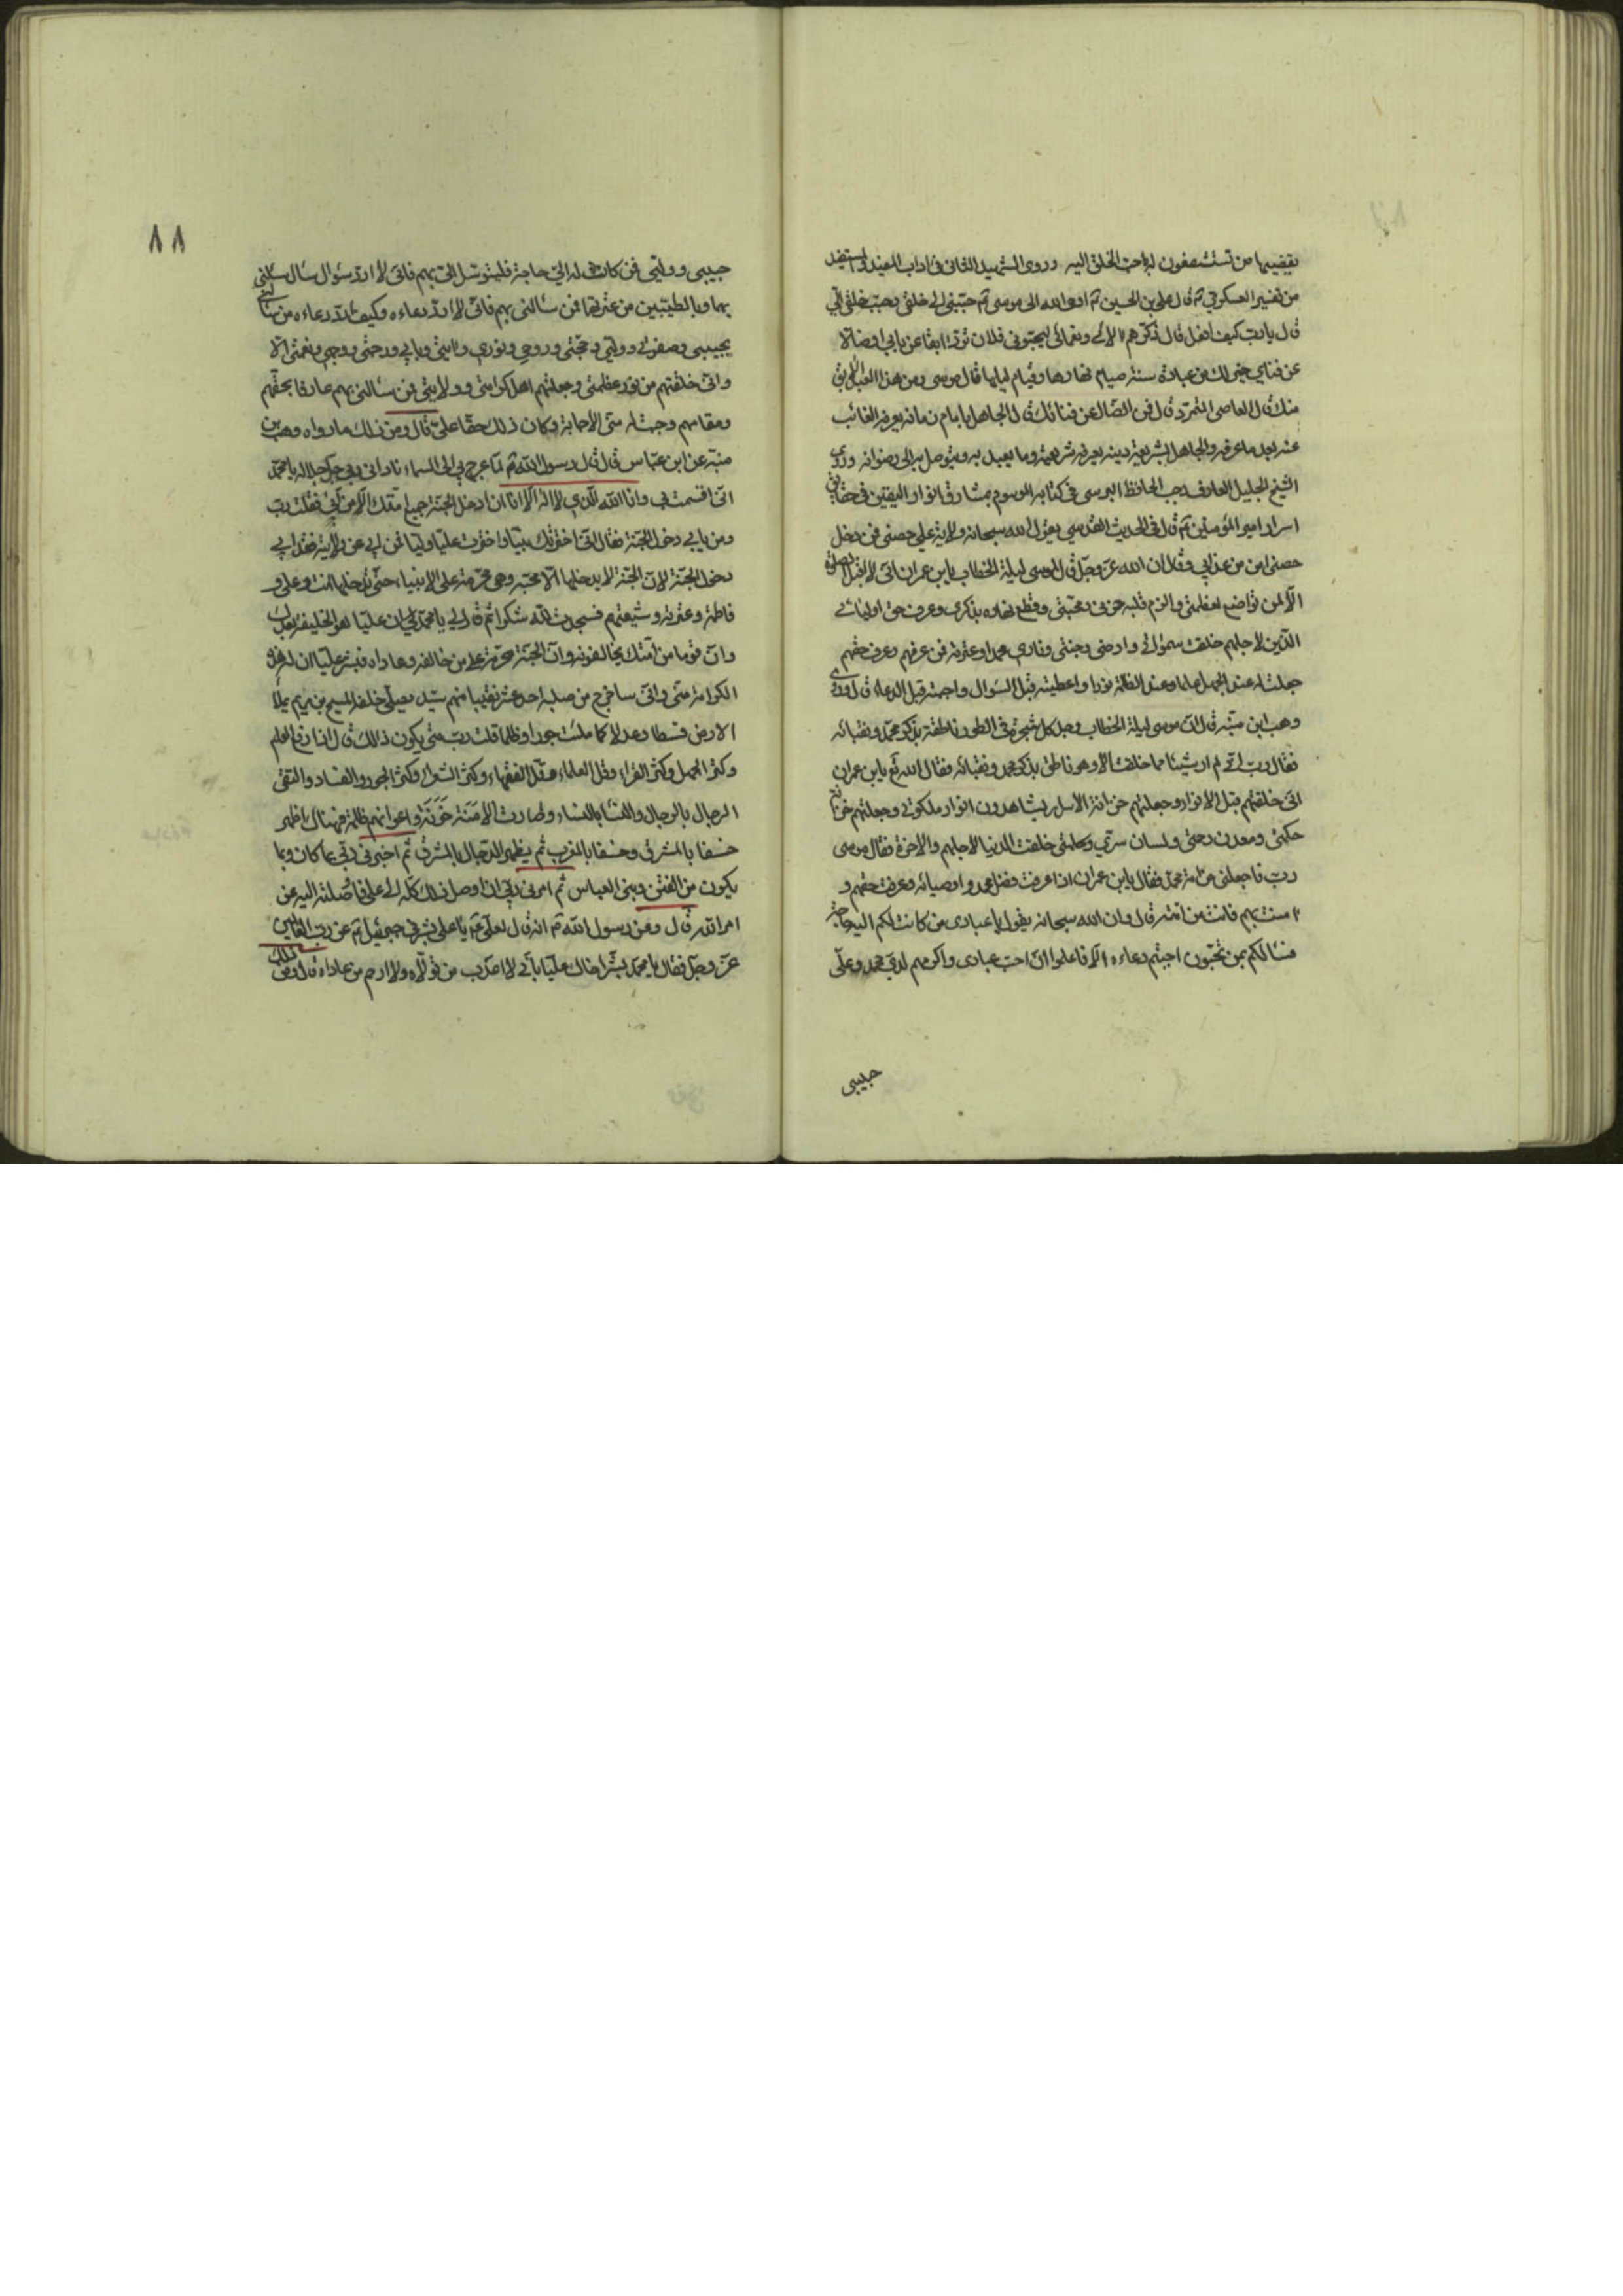 يقضيها من تستشفعون له باحب الخلق اليه وروى الشهيد الثاني في اداب المفيد والمستفيد
من تفسير العسكري ع قال علي بن الحسين ع اوحى الله الى موسى ع حببني الى خلقي وحبب خلقي الي
قال يا رب كيف افعل قال ذكرهم الائي ونعمائي ليحبوني فلان ترد ابقا عن بابي او ضالا
عن فنائي خير لك من عبادة سنة صيام نهارها وقيام ليلها قال موسى ومن هذا العبد الابق
منك قال العاصي المتمرد قال فمن الضال عن فنائك قال الجاهل بامام زمانه يعرفه الغائب
عنه بعد ما عرفه والجاهل بشريعة دينه يعرفه شريعته وما يعبد به ربه ويتوصل به الى رضوانه وروى
الشيخ الجليل العارف رجب الحافظ البرسي في كتابه الموسوم بمشارق انوار اليقين في حقايق
اسرار امير المؤمنين ع قال في الحديث القدسي يقول الله سبحانه ولاية علي حصني فمن دخل
حصني امن من عذابي وقال ان الله عز وجل قال لموسى ليلة الخطاب يابن عمران اني لا اقبل الصلوة
الا لمن تواضع لعظمتي والزم قلبه خوفي ومحبتي وقطع نهاره بذكري وعرف حق اوليائي
الذين لاجلهم خلقت سمواتي وارضي وجنتي وناري محمدا وعترته فمن عرفهم وعرف حقهم
جعلت له عند الجهل علما وعند الظلمة نورا واعطيته قبل السؤال واجبته قبل الدعاء قال وروى
وهب ابن منبه قال ان موسى ليلة الخطاب وجد كل شجرة في الطور ناطقة بذكر محمد ونقبائه
فقال رب اني لم ار شيئا مما خلقت الا وهو ناطق بذكر محمد ونقبائه فقال الله تع يابن عمران
اني خلقتهم قبل الانوار وجعلتهم خزانة الاسرار يشاهدون انوار ملكوتي وجعلتهم خزانة
حكمتي ومعدن رحمتي ولسان سري وكلمتي خلقت الدنيا لاجلهم والاخرة فقال موسى
رب فاجعلني من امة محمد فقال يابن عمران اذا عرفت فضل محمد واوصيائه وعرفت حقهم و
امنت بهم فانت من امته قال وان الله سبحانه يقول يا عبادي من كانت لكم اليه حاجة
فسالكم بمن تحبون اجبتم دعاءه الا فاعلموا ان احب عبادي واكرمهم لدي محمد وعلي
حبيبي
٨٨
حبيبي ووليي فمن كانت له الي حاجة فليتوسل الي بهم فاني لا ارد سؤال سائل سالني
بهما وبالطيبين من عترتهما فمن سالني بهم فاني لا ارد دعاءه وكيف ارد دعاء من سالني
بحبيبي وصفوتي ووليي وحجتي وروحي ونوري وايتي وبابي ورحمتي ووجهي ونعمتي الا
واني خلقتهم من نور عظمتي وجعلتهم اهل كرامتي وولايتي فمن سالني بهم عارفا بحقهم
ومقامهم وجبت له مني الاجابة وكان ذلك حقا علي قال ومن ذلك ما رواه وهب بن
منبه عن ابن عباس قال قال رسول الله ص لما عرج بي الى السماء ناداني ربي جل جلاله يا محمد
اني اقسمت بي وانا الله الذي لا اله الا انا ان ادخل الجنة جميع امتك الا من ابى فقلت رب
ومن يابى دخول الجنة فقال اني اخترتك نبيا واخترت عليا وليا فمن ابى عن ولايته فقد ابى
دخول الجنة لان الجنة لا يدخلها الا محبه وهي محرمة على الانبياء حتى تدخلها انت وعلي و
فاطمة وعترته وشيعتهم فسجدت لله شكرا ثم قال لي يا محمد ان عليا هو الخليفة بعدك
وان قوما من امتك يخالفونه وان الجنة محرمة على من خالفه وعاداه فبشر عليا ان له هذه
الكرامة مني واني ساخرج من صلبه احد عشر نقيبا منهم سيد يصلي خلفه المسيح بن مريم يملا
الارض قسطا وعدلا كما ملئت جورا وظلما قلت رب متى يكون ذلك قال اذا رفع العلم
وكثر الجهل وكثر القراء وقل العلماء وقل الفقهاء وكثر الشعراء وكثر الجور والفساد والتقى
الرجال بالرجال والنساء بالنساء وصارت الامنة خونة واعوانهم ظلمة فهناك اظهر
خسفا بالمشرق وخسفا بالمغرب ثم يظهر الدجال بالمشرق ثم اخبرني ربي بما كان وما
يكون من الفتن وبني العباس ثم امرني ربي ان اوصل ذلك كله الى علي فاوصلته اليه عن
امر الله قال وعن رسول الله ص انه قال لعلي ع يا علي بشرني جبرئيل ع عن رب العالمين
عز وجل فقال يا محمد بشر اخاك عليا باني لا اعذب من تولاه ولا ارحم من عاداه قال ومن ذلك